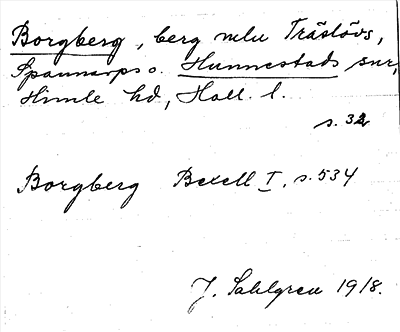 Borgberg, berg mln Träslövs,
Spannarps o. Hunnestads snr,
Himle hd, Hall. l.
s. 32
Borgberg Bexell I, s. 534
J. Sahlgren 1918.